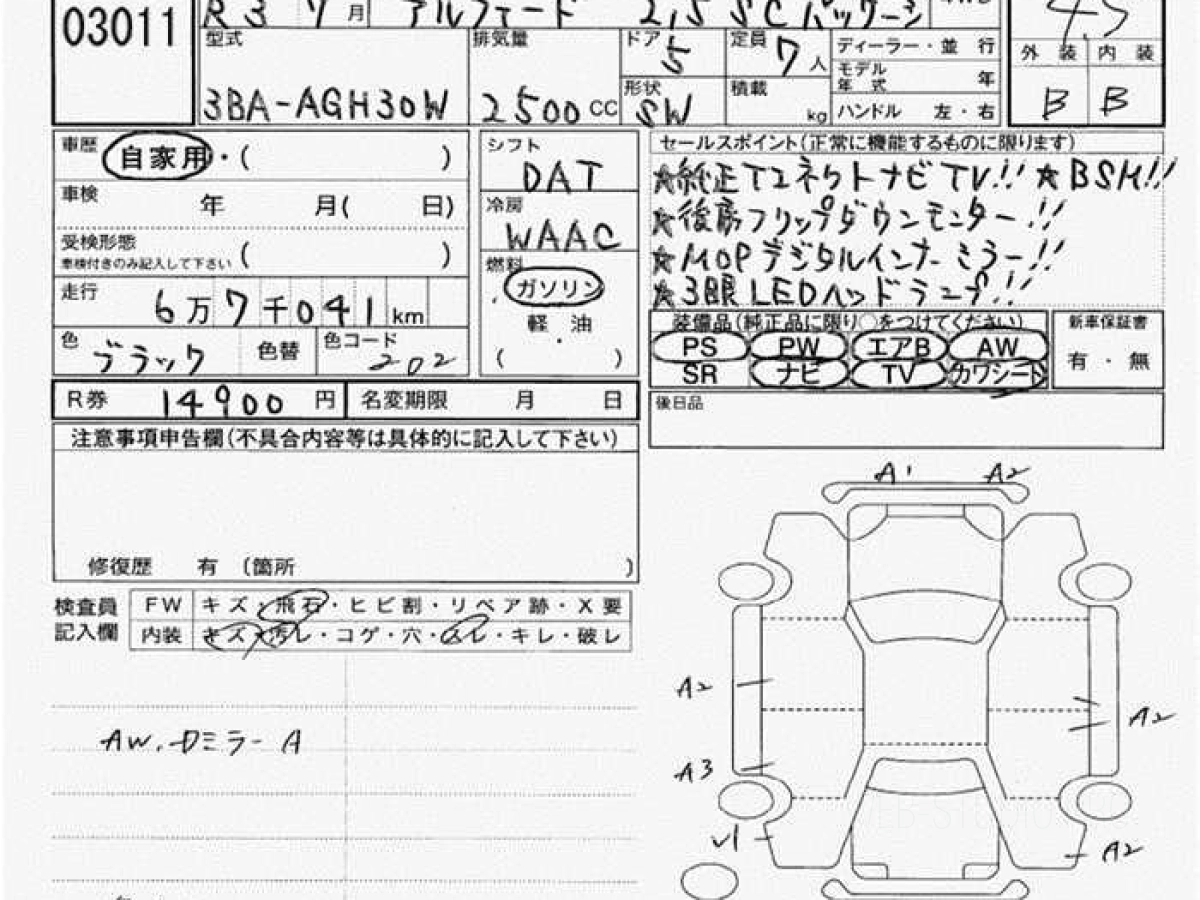 03011
R3 7月 アルファード 2.5 SCパッケージ
4.5
型式 3BA-AGH30W
排気量 2500 CC
ドア 5
定員 7人
形状 SW
積載 kg
ディーラー・並行
モデル年式 年
ハンドル 左・右
外装 内装
B B
車歴 自家用・( )
車検 年 月( 日)
受検形態 ( )
車検付きのみ記入して下さい
走行 6万7千041km
色 ブラック 色替 色コード 202
シフト DAT
冷房 WAAC
燃料 ガソリン
軽油
( )
セールスポイント(正常に機能するものに限ります)
★純正Tコネクトナビ TV!! ★BSM!!
★後席フリップダウンモニター!!
★MOPデジタルインナーミラー!!
★3眼LEDヘッドランプ!!
装備品(純正品に限り○をつけてください)
PS PW エアB AW
SR ナビ TV カワシート
新車保証書
有・無
R券 14900円 名変期限 月 日
後日品
注意事項申告欄(不具合内容等は具体的に記入して下さい)
修復歴 有 (箇所 )
検査員記入欄
FW キズ・飛石・ヒビ割・リペア跡・X要
内装 キズ・汚レ・コゲ・穴・スレ・キレ・破レ
AW.Dミラー A
A1 A2
A2
A2
A3
A2